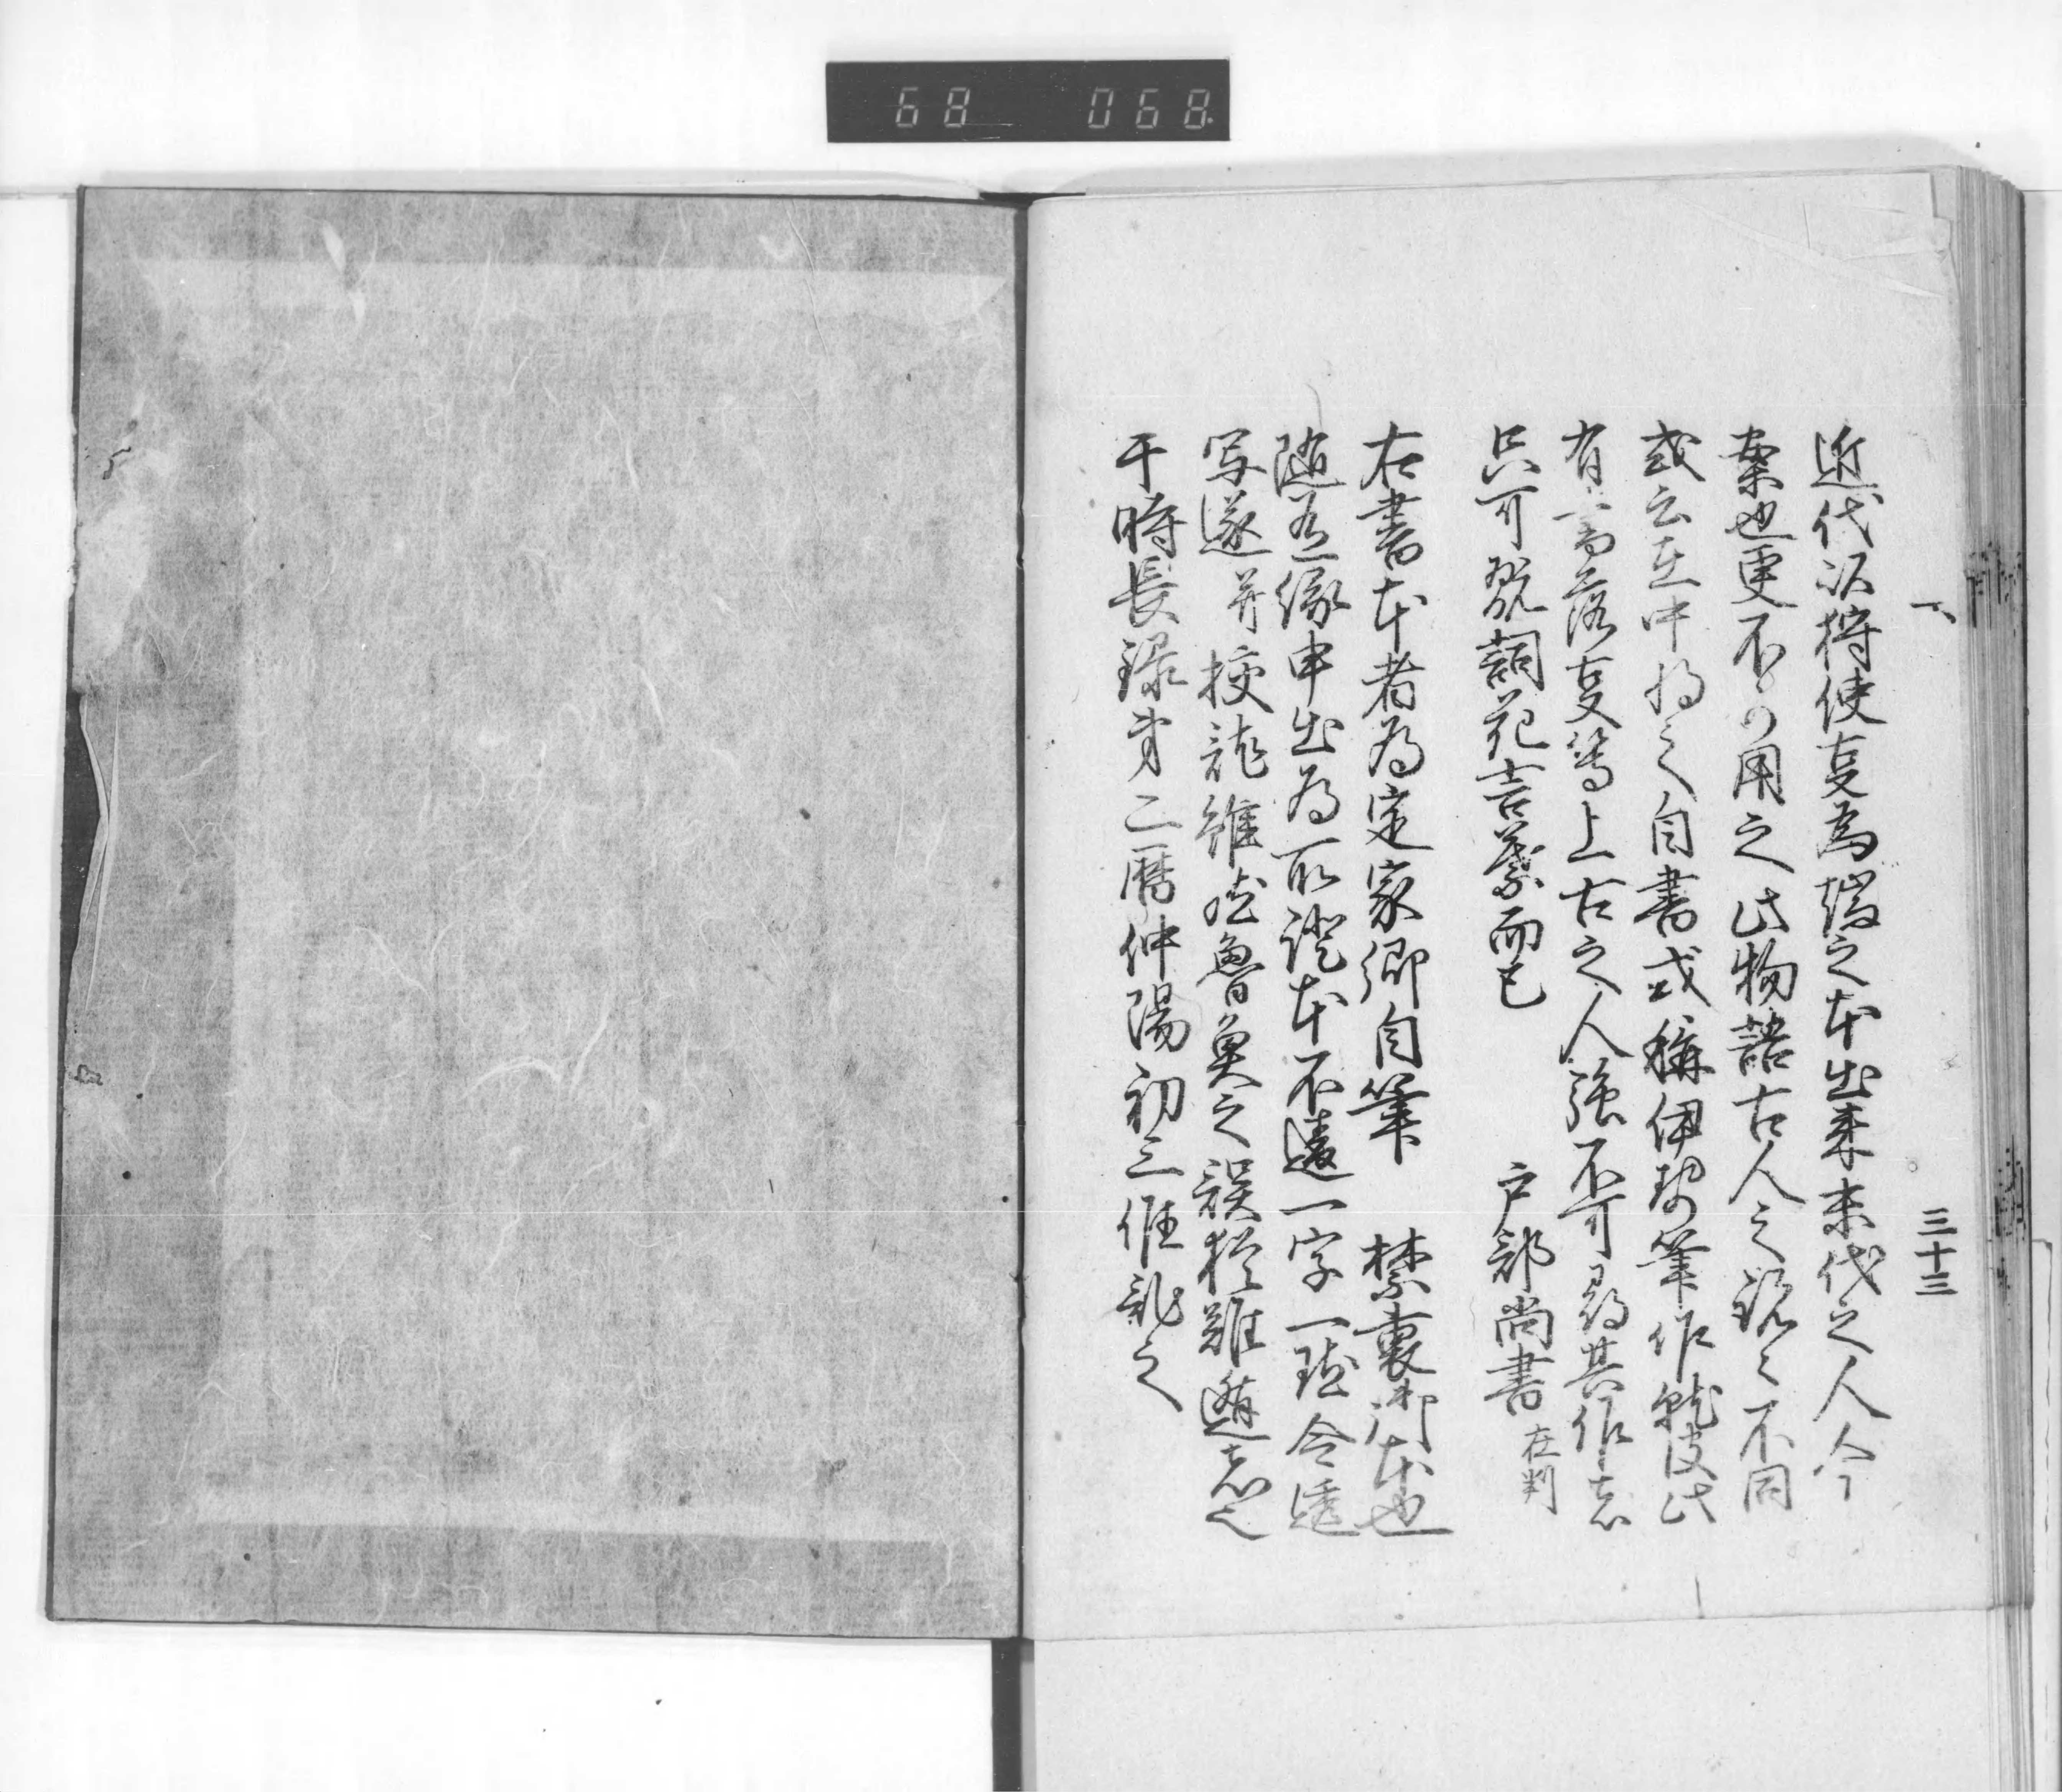 68 068
下 三十三
近代以狩使事為端之本出来末代之人今
案也更不可用之此物語古人之説々不同
或云在中将之自書或称伊勢筆作就彼此
有書落事等上古之人強不可尋其作者
只可翫詞花言葉而已
戸部尚書 在判
右書本者為定家卿自筆 禁裏御本也
随有縁申出為所證本不違一字一点令透
写遂并校訖雖然魯魚之誤猶難遁者也
干時長禄第二暦仲陽初三惟記之